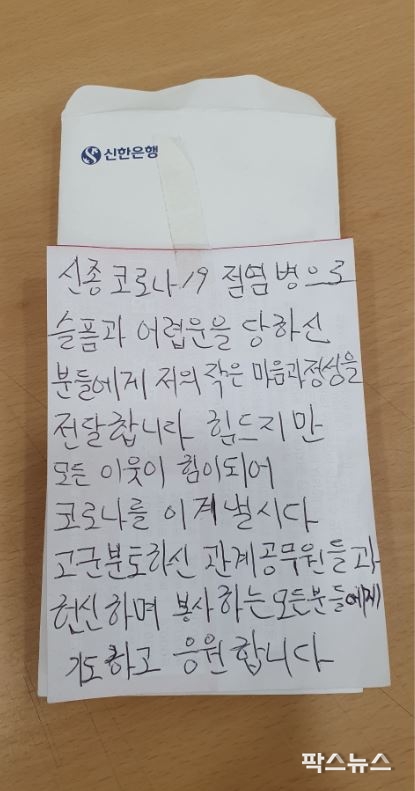 신한은행
신종 코로나19 점염병으로
슬픔과 어렵운을 당하신
분들에게 저의 작은 마음과정성을
전달합니다 힘드지만
모든 이웃이 힘이되어
코로나를 이겨낼시다
고군분토하신 관계공무원들과
헌신하며 봉사하는모든분들에게
기도하고 응원합니다
팍스뉴스